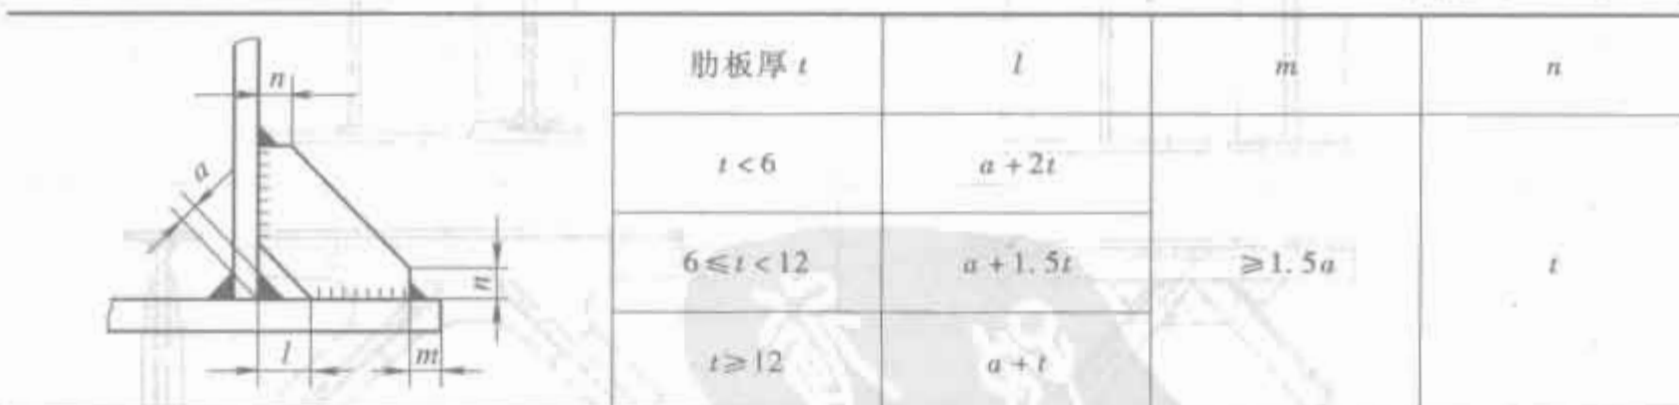 n
a
n
l
m
肋板厚 t l m n
t<6 a+2t
6≤t<12 a+1.5t ≥1.5a t
t≥12 a+t